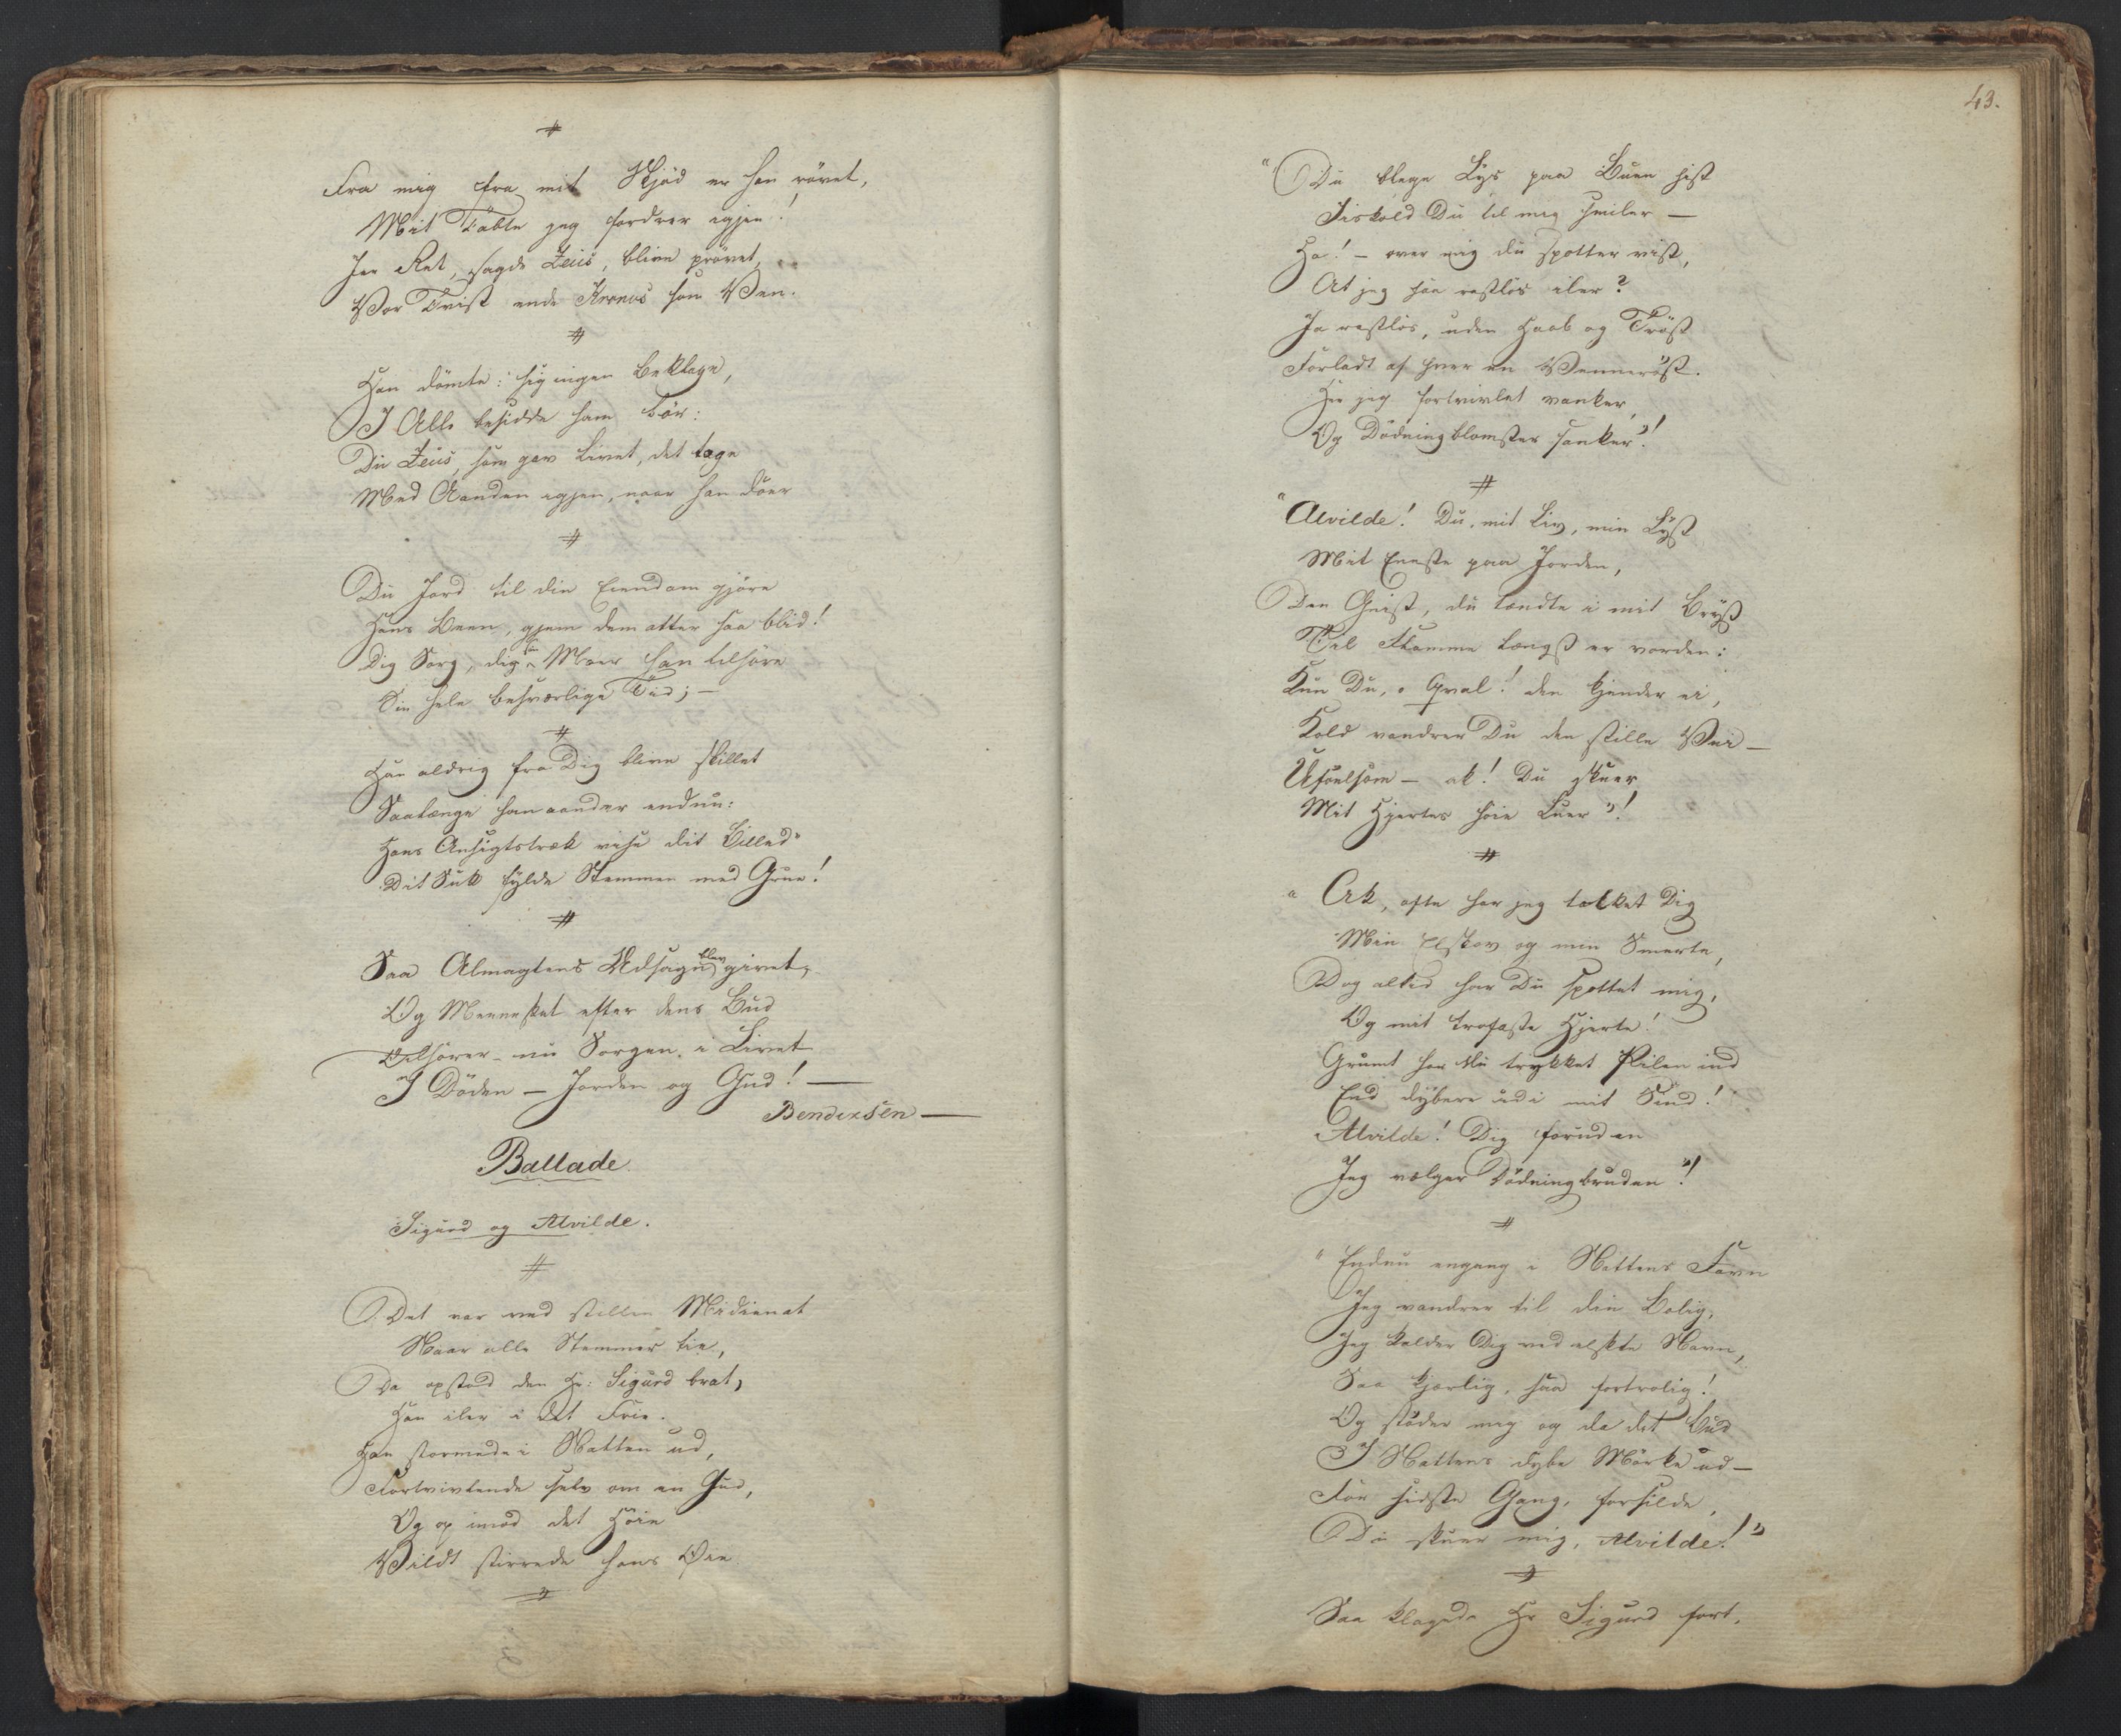 #
Fra mig fra mit Skjöd er han rövet,
Mit Tabte jeg fordrer igjen!
Jer Ret, sagde Zeus, blive prövet,
Vor Tvist ende Kronos som Ven.
#
Han dömte: sig ingen beklage,
I Alle besidde ham bör:
Du Zeus, som gav Livet, det tage
Med Aanden igjen, naar han döer
#
Du Jord til din Eiendom gjöre
Hans Been, gjem dem atter saa blid!
Dig Sorg, dig Moer han tilhöre
Sin hele besværlige Tid; —
#
Han aldrig fra Dig blive skillet
Saalænge han aander endnu:
Hans Ansigtstræk vise dit Billed
Dit Suk fylde Stemmen med Grue!
#
Saa Almagtens Udsagn blev givet,
Og Mennesket efter dens Bud
Tilhörer nu Sorgen i Livet
I Döden — Jorden og Gud! —
Bendixsen —
Ballade
Sigurd og Alvilde.
#
Det var ved stillen Midienat
Naar alle Stemmer tie,
Da opstod den Hr: Sigurd brat,
Han iler i det Frie.
Han stormede i Natten ud,
Fortvivlende selv om en Gud,
Og op imod det Höie
Vildt stirrede hans Öie
#
43.
"Du blege Lys paa Buen hist
Iiskold Du til mig smiler —
Ha! — over mig du spotter vist,
At jeg saa rastlös iler?
Ja rastlös, uden Haab og Tröst
Forladt af hver en Venneröst.
Her jeg fortvivlet vanker,
Og Dödningblomster sanker"!
#
"Alvilde! Du, mit Liv, min Lyst
Mit Eneste paa Jorden,
Den Gnist, du tændte i mit Bryst
Til Flamme længst er vorden:
Kun Du, o Qval! den kjender ei,
Kold vandrer Du den stille Vei —
Ufoelsom — ak! Du skuer
Mit Hjertes höie Luer"!
#
" Ak, ofte har jeg tolket Dig
Min Elskov og min Smerte,
Dog altid har Du spottet mig,
Og mit trofaste Hjerte!
Grumt har Du trykket Pilen ind
End dybere ud i mit Sind!
Alvilde! Dig foruden
Jeg vælger Dödningbruden"!
#
" Endnu engang i Nattens Favn
Jeg vandrer til din Bolig,
Jeg kalder Dig ved elskte Navn,
Saa kjærlig, saa fortrolig!
Og stöder mig og da dit Bud
I Nattens dybe Mörke ud —
For sidste Gang, forsilde,
Du skuer mig, Alvilde!"
#
Saa klagede Hr Sigurd fort,